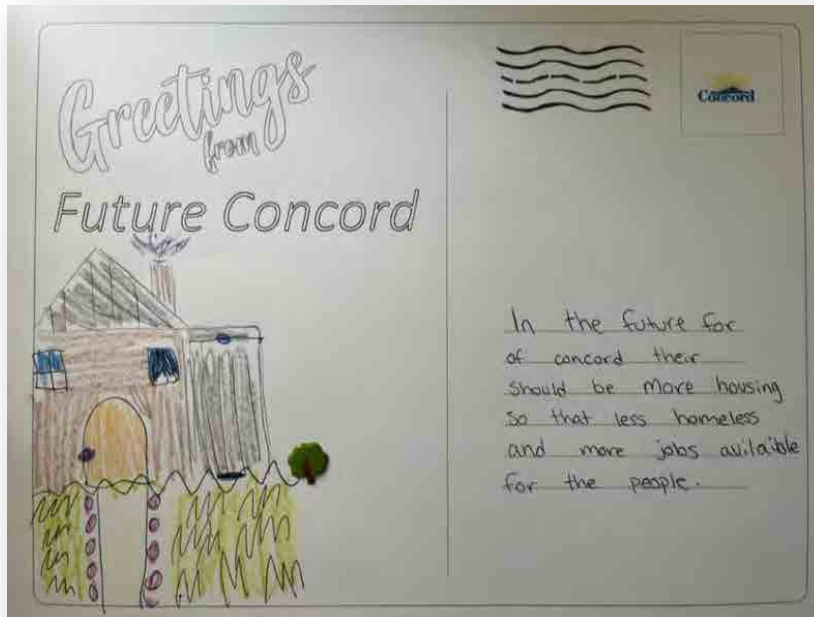 Greetings
from
Future Concord
Concord
In the future for
of concord their
should be more housing
so that less homeless
and more jobs avilaible
for the people.